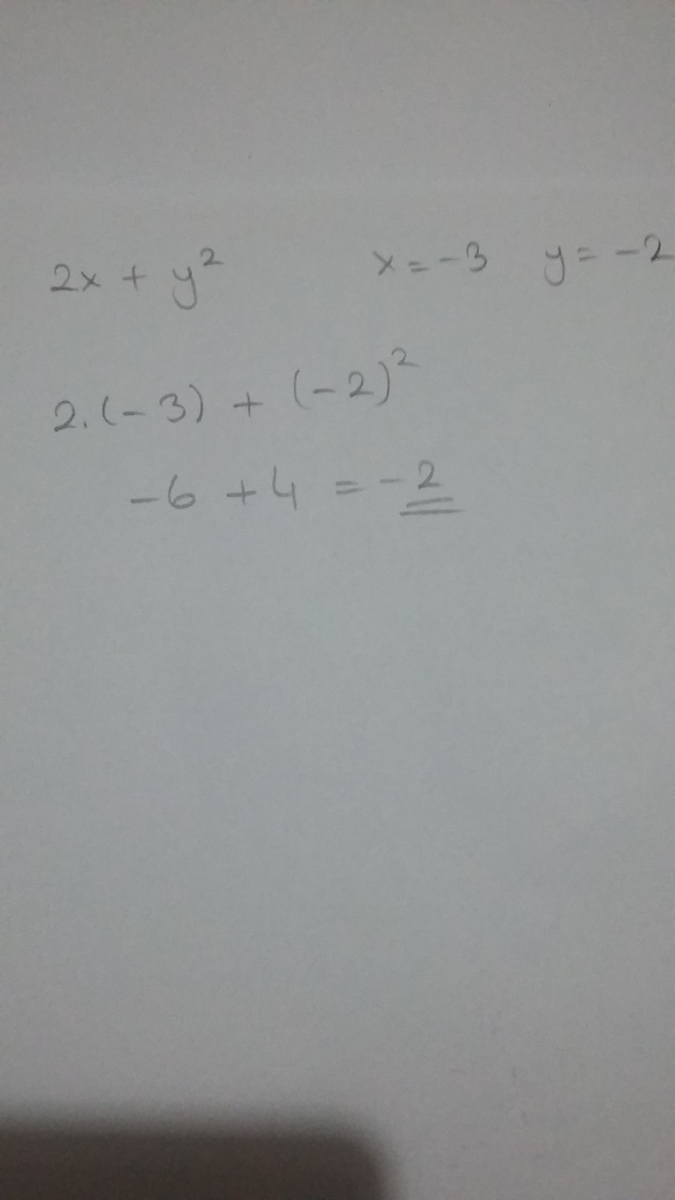 2x + y² x = -3 y = -2
2.(-3) + (-2)²
-6 + 4 = -2